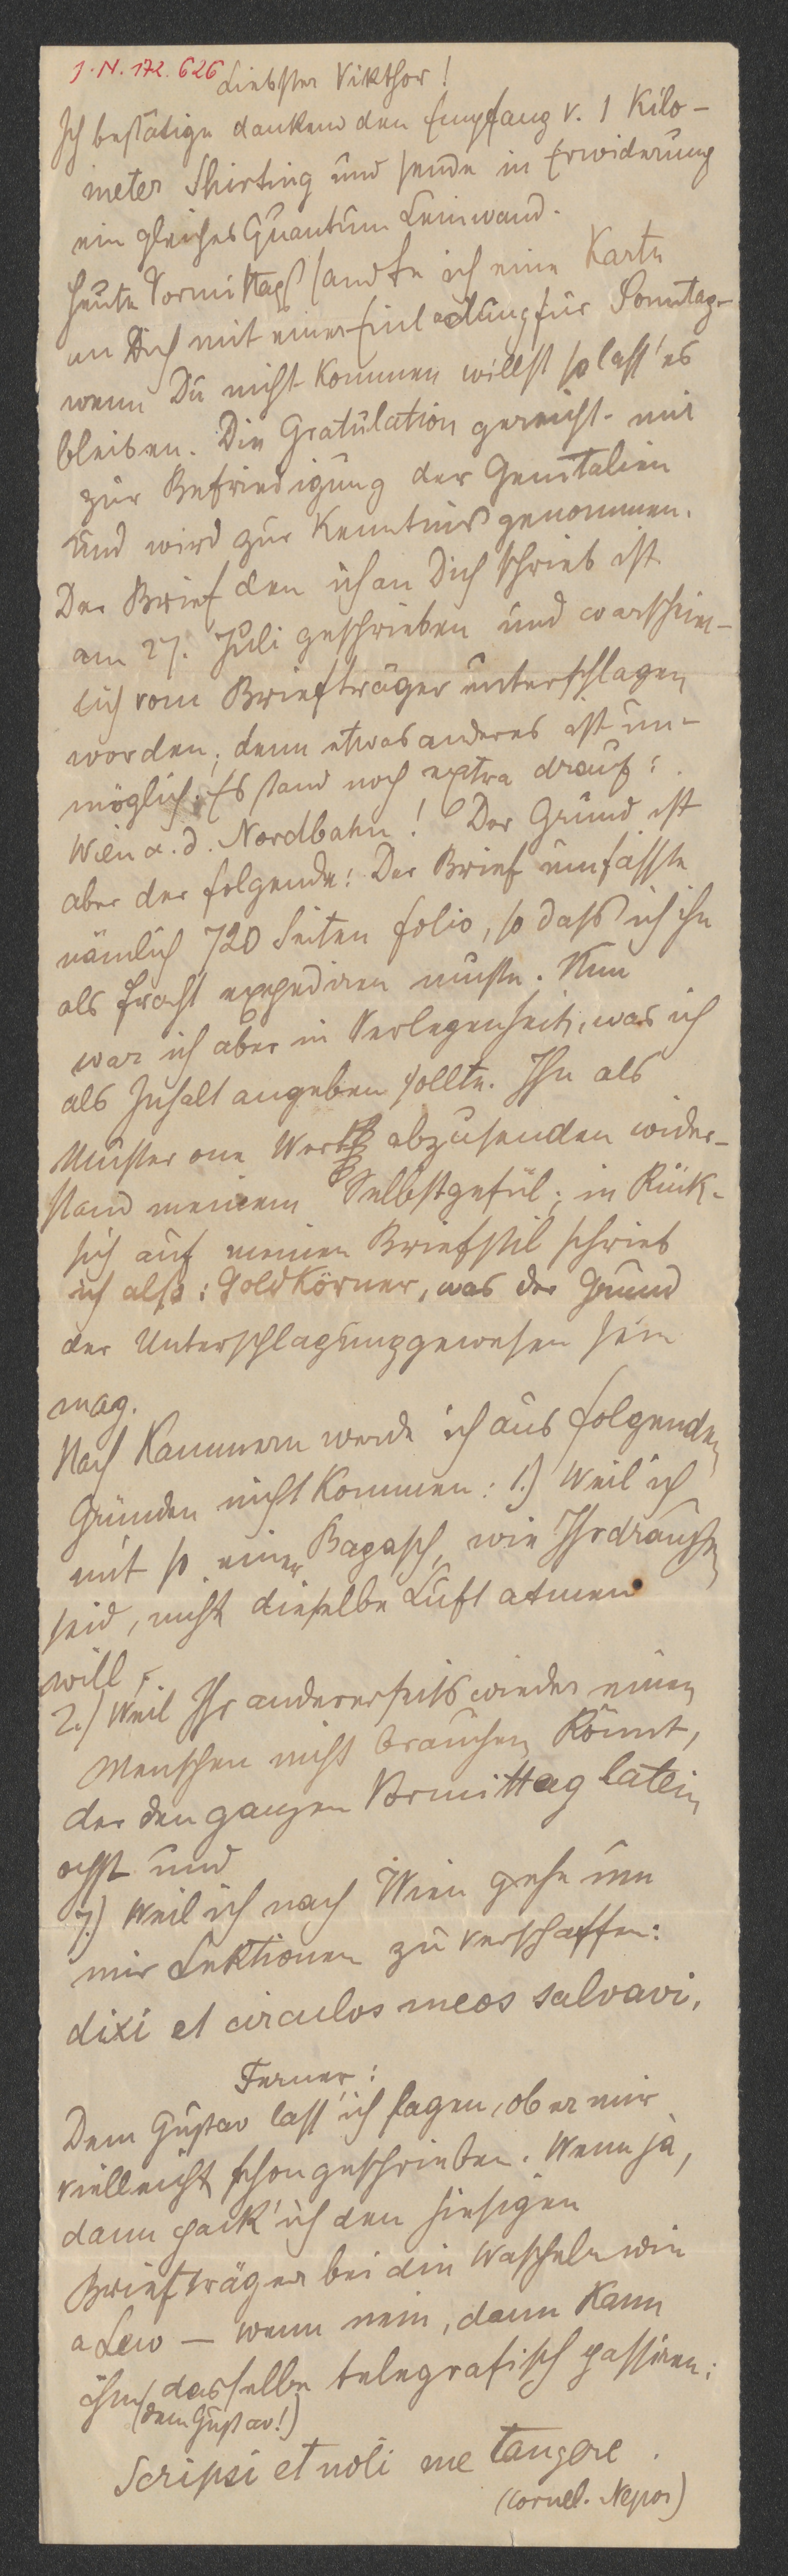 J. N. 172.626
Liebster Vikthor!
Ich bestätige dankend den Empfang v. 1 Kilo-
meter Shirting und sende in Erwiderung
ein gleiches Quantum Leinwand.
Heute Vormittag sandte ich eine Karte
an Dich mit einer Einladung für Sonntag-
wenn Du nicht kommen willst so lass' es
bleiben. Die Gratulation gereicht mir
zur Befriedigung der Genitalien
und wird zur Kenntniß genommen.
Der Brief den ich an Dich schrieb ist
am 27. Juli geschrieben und warschein-
lich vom Briefträger unterschlagen
worden; denn etwas anderes ist un-
möglich. Es stand noch extra drauf:
Wien a. d. Nordbahn! Der Grund ist
aber der folgende: Der Brief umfasste
nämlich 720 Seiten folio, so daß ich ihn
als Fracht expediren musste. Nun
war ich aber in Verlegenheit, was ich
als Inhalt angeben sollte. Ihn als
Muster one Wert abzusenden wider-
stand meinem Selbstgefül; in Rük-
sich auf meinen Briefstil schrieb
ich also: Goldkörner, was der Grund
der Unterschlagung gewesen sein
mag.
Nach Kammern werde ich aus folgenden
Gründen nicht kommen: 1.) Weil ich
mit so einer Bagasch, wie Ihr draußen
seid, nicht dieselbe Luft atmen
will,
2.) Weil Ihr andererseits wieder einen
Menschen nicht brauchen könnt,
der den ganzen Vormittag latein
ochst und
7.) Weil ich nach Wien gehe um
mir Lektionen zu verschaffen:
dixi et circulos meos salvavi.
Ferner:
Dem Gustav lass' ich sagen, ob er mir
vielleicht schon geschrieben. Wenn ja,
dann pack' ich den hiesigen
Briefträger bei die Wascheln wie
a Lew — wenn nein, dann kann
ihm dasselbe telegrafisch passiren:
(dem Gustav!)
Scripsi et noli me tangere.
(Cornel. Nepos)